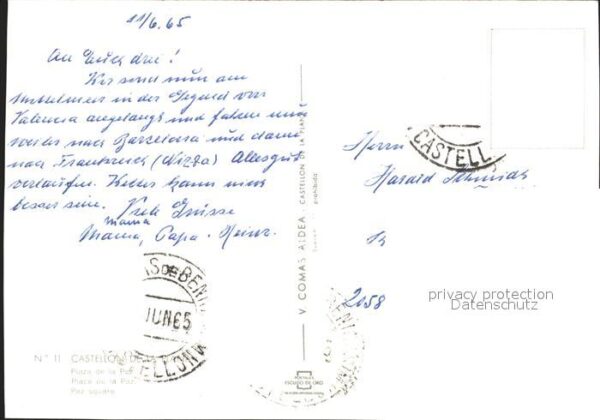 11/6.65
An Euch drei!
Wir sind nun am
Mittelmeer in der Gegend von
Valencia angelangt und fahren nun
weiter nach Barcelona und dann
nach Frankreich (Nizza) Alles gut
verlaufen. Wetter kann nicht
besser sein. Viele Grüsse
Mama
Mama, Papa - Heinz.
Herrn
Harald
2058
CASTELL
S DE BENI
JUN 65
TELLON
V. COMAS ALDEA. CASTELLON DE LA PLANA
prohibida
ESCUDO DE ORO
N.º 11 CASTELLON DE LA
Plaza de la Paz
Place de la Paz
Paz square
privacy protection
www.oldthing.com